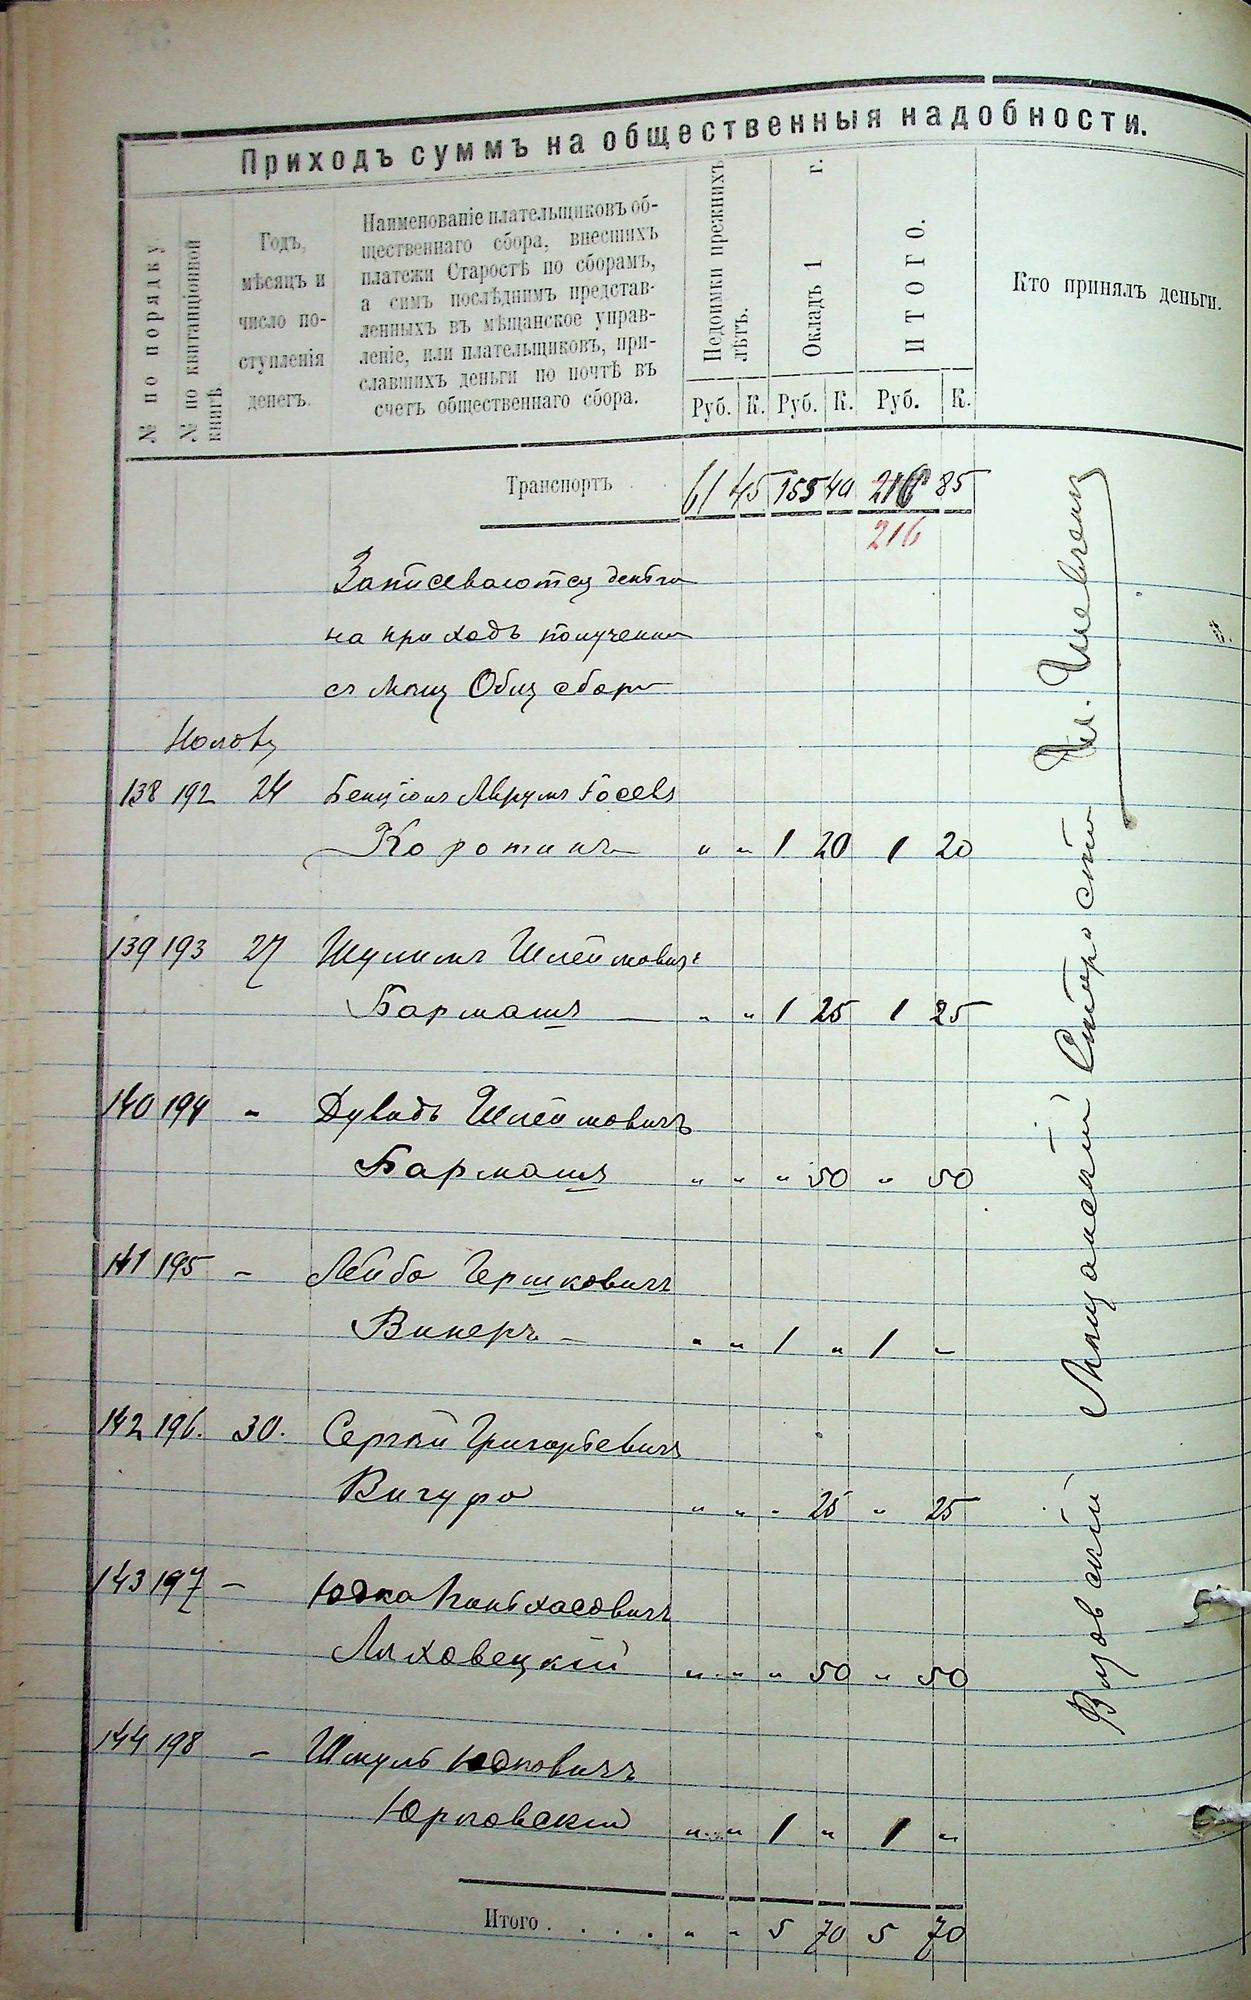 Приходъ суммъ на общественныя надобности.
№ по порядку.
№ по квитанціонной
книгѣ.
Годъ,
мѣсяцъ и
число по-
ступленія
денегъ.
Наименованіе плательщиковъ об-
щественнаго сбора, внесшихъ
платежи Старостѣ по сборамъ,
а симъ послѣднимъ представ-
ленныхъ въ мѣщанское управ-
леніе, или плательщиковъ, при-
славшихъ деньги по почтѣ въ
счетъ общественнаго сбора.
Недоимки прежнихъ
лѣтъ.
Окладъ 1 г.
ИТОГО.
Кто принялъ деньги.
Руб. К. Руб. К. Руб. К.
Транспортъ 61 45 155 40 216 85
216
деньги
на приходъ
Общ сбора
138 192 24
Коротинъ " " 1 20 1 20
139 193 27 Шулимъ Шлеймовичъ
Бармашъ " " 1 25 1 25
140 194 - Дувидъ Шлеймовичъ
Бармашъ " " " 50 " 50
141 195 - Лейба Гершковичъ
Винеръ " " 1 " 1 "
142 196. 30. Сергѣй Григорьевичъ
Вигура " " " 25 " 25
143 197 - Юдка Пинхасовичъ
Ляховецкій " " " 50 " 50
144 198 - Шмуль Юдковичъ
Юрковскій " " 1 " 1 "
Итого . . . . " " 5 70 5 70
Мѣщанскій Староста